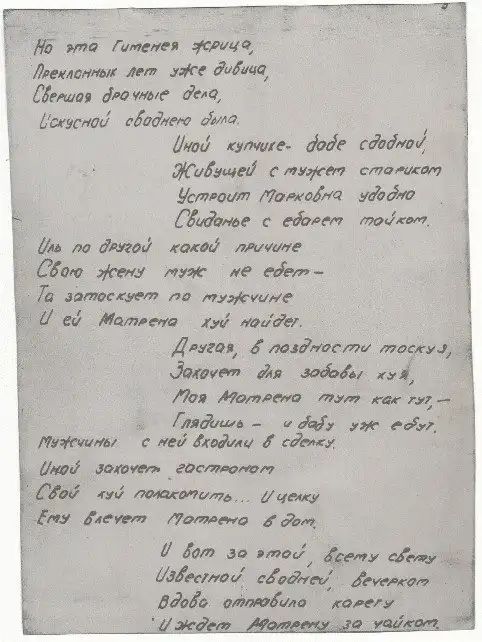 Но эта Гименея жрица,
Преклонных лет уже дивица,
Свершая брачные дела,
Искусной сводней была.
Иной купчике - бабе сдобной,
Живущей с мужем стариком
Устроит Марковна удобно
Свиданье с ебарем тайком.
Иль по другой какой причине
Свою жену муж не ебет —
Та затоскует по мужчине
И ей Матрена хуй найдет.
Другая, в праздности тоскуя,
Захочет для забавы хуя,
Моя Матрена тут как тут, —
Глядишь — и бабу уж ебут.
Мужчины с ней входили в сделку.
Иной захочет гастроном
Свой хуй полакомить... И целку
Ему влечет Матрена в дом.
И вот за этой, всему свету
Известной сводней, вечерком
Вдова отправила карету
И ждет Матрену за чайком.